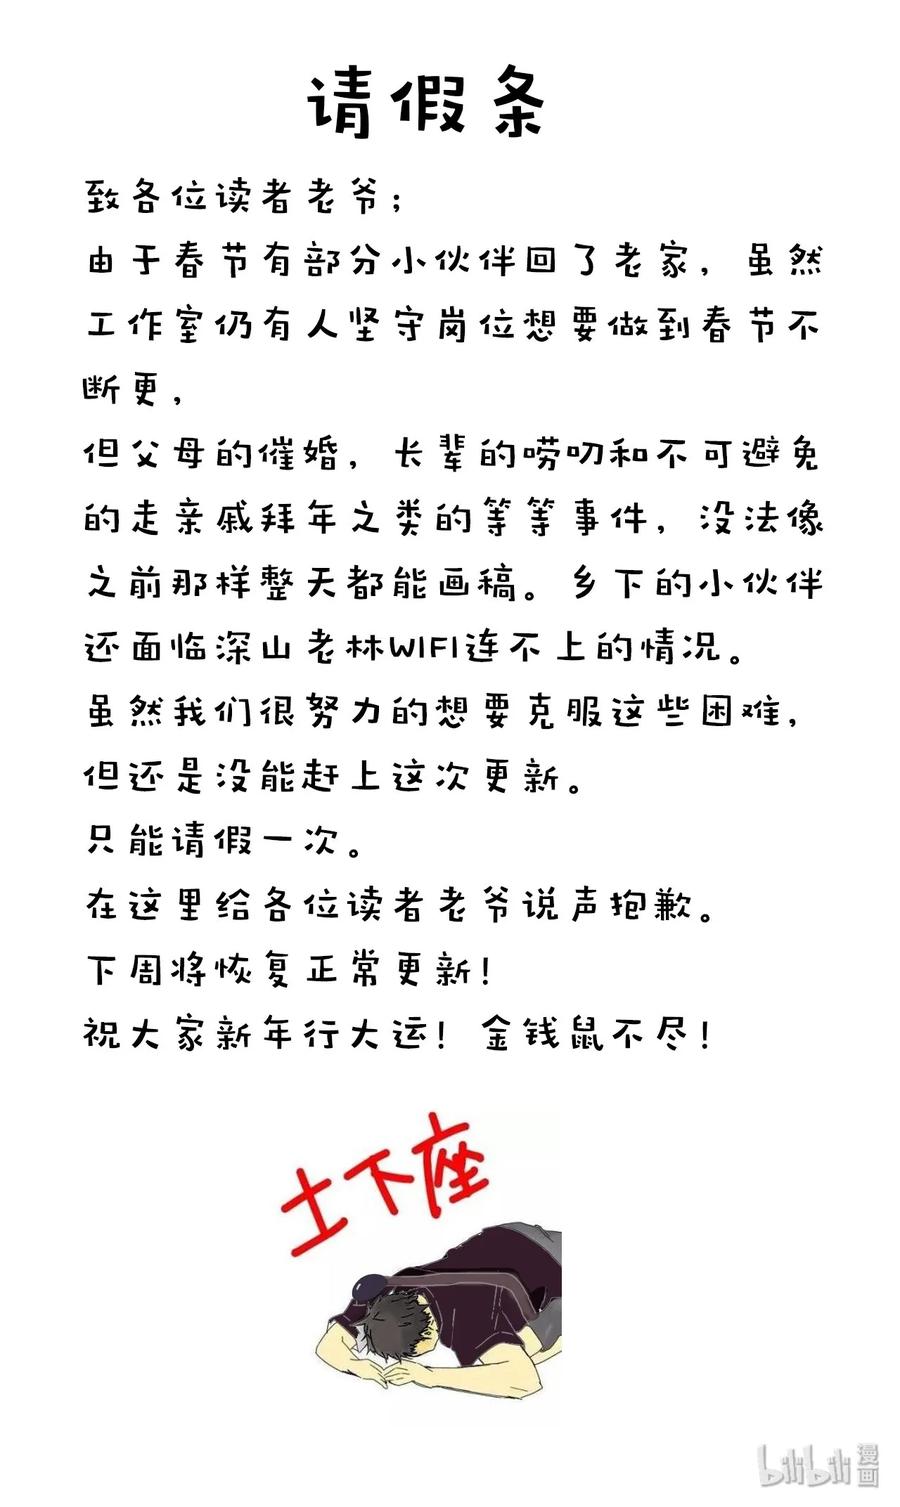 请假条
致各位读者老爷；
由于春节有部分小伙伴回了老家，虽然
工作室仍有人坚守岗位想要做到春节不
断更，
但父母的催婚，长辈的唠叨和不可避免
的走亲戚拜年之类的等等事件，没法像
之前那样整天都能画稿。乡下的小伙伴
还面临深山老林WIFI连不上的情况。
虽然我们很努力的想要克服这些困难，
但还是没能赶上这次更新。
只能请假一次。
在这里给各位读者老爷说声抱歉。
下周将恢复正常更新！
祝大家新年行大运！金钱鼠不尽！
土下座
bilibili漫画